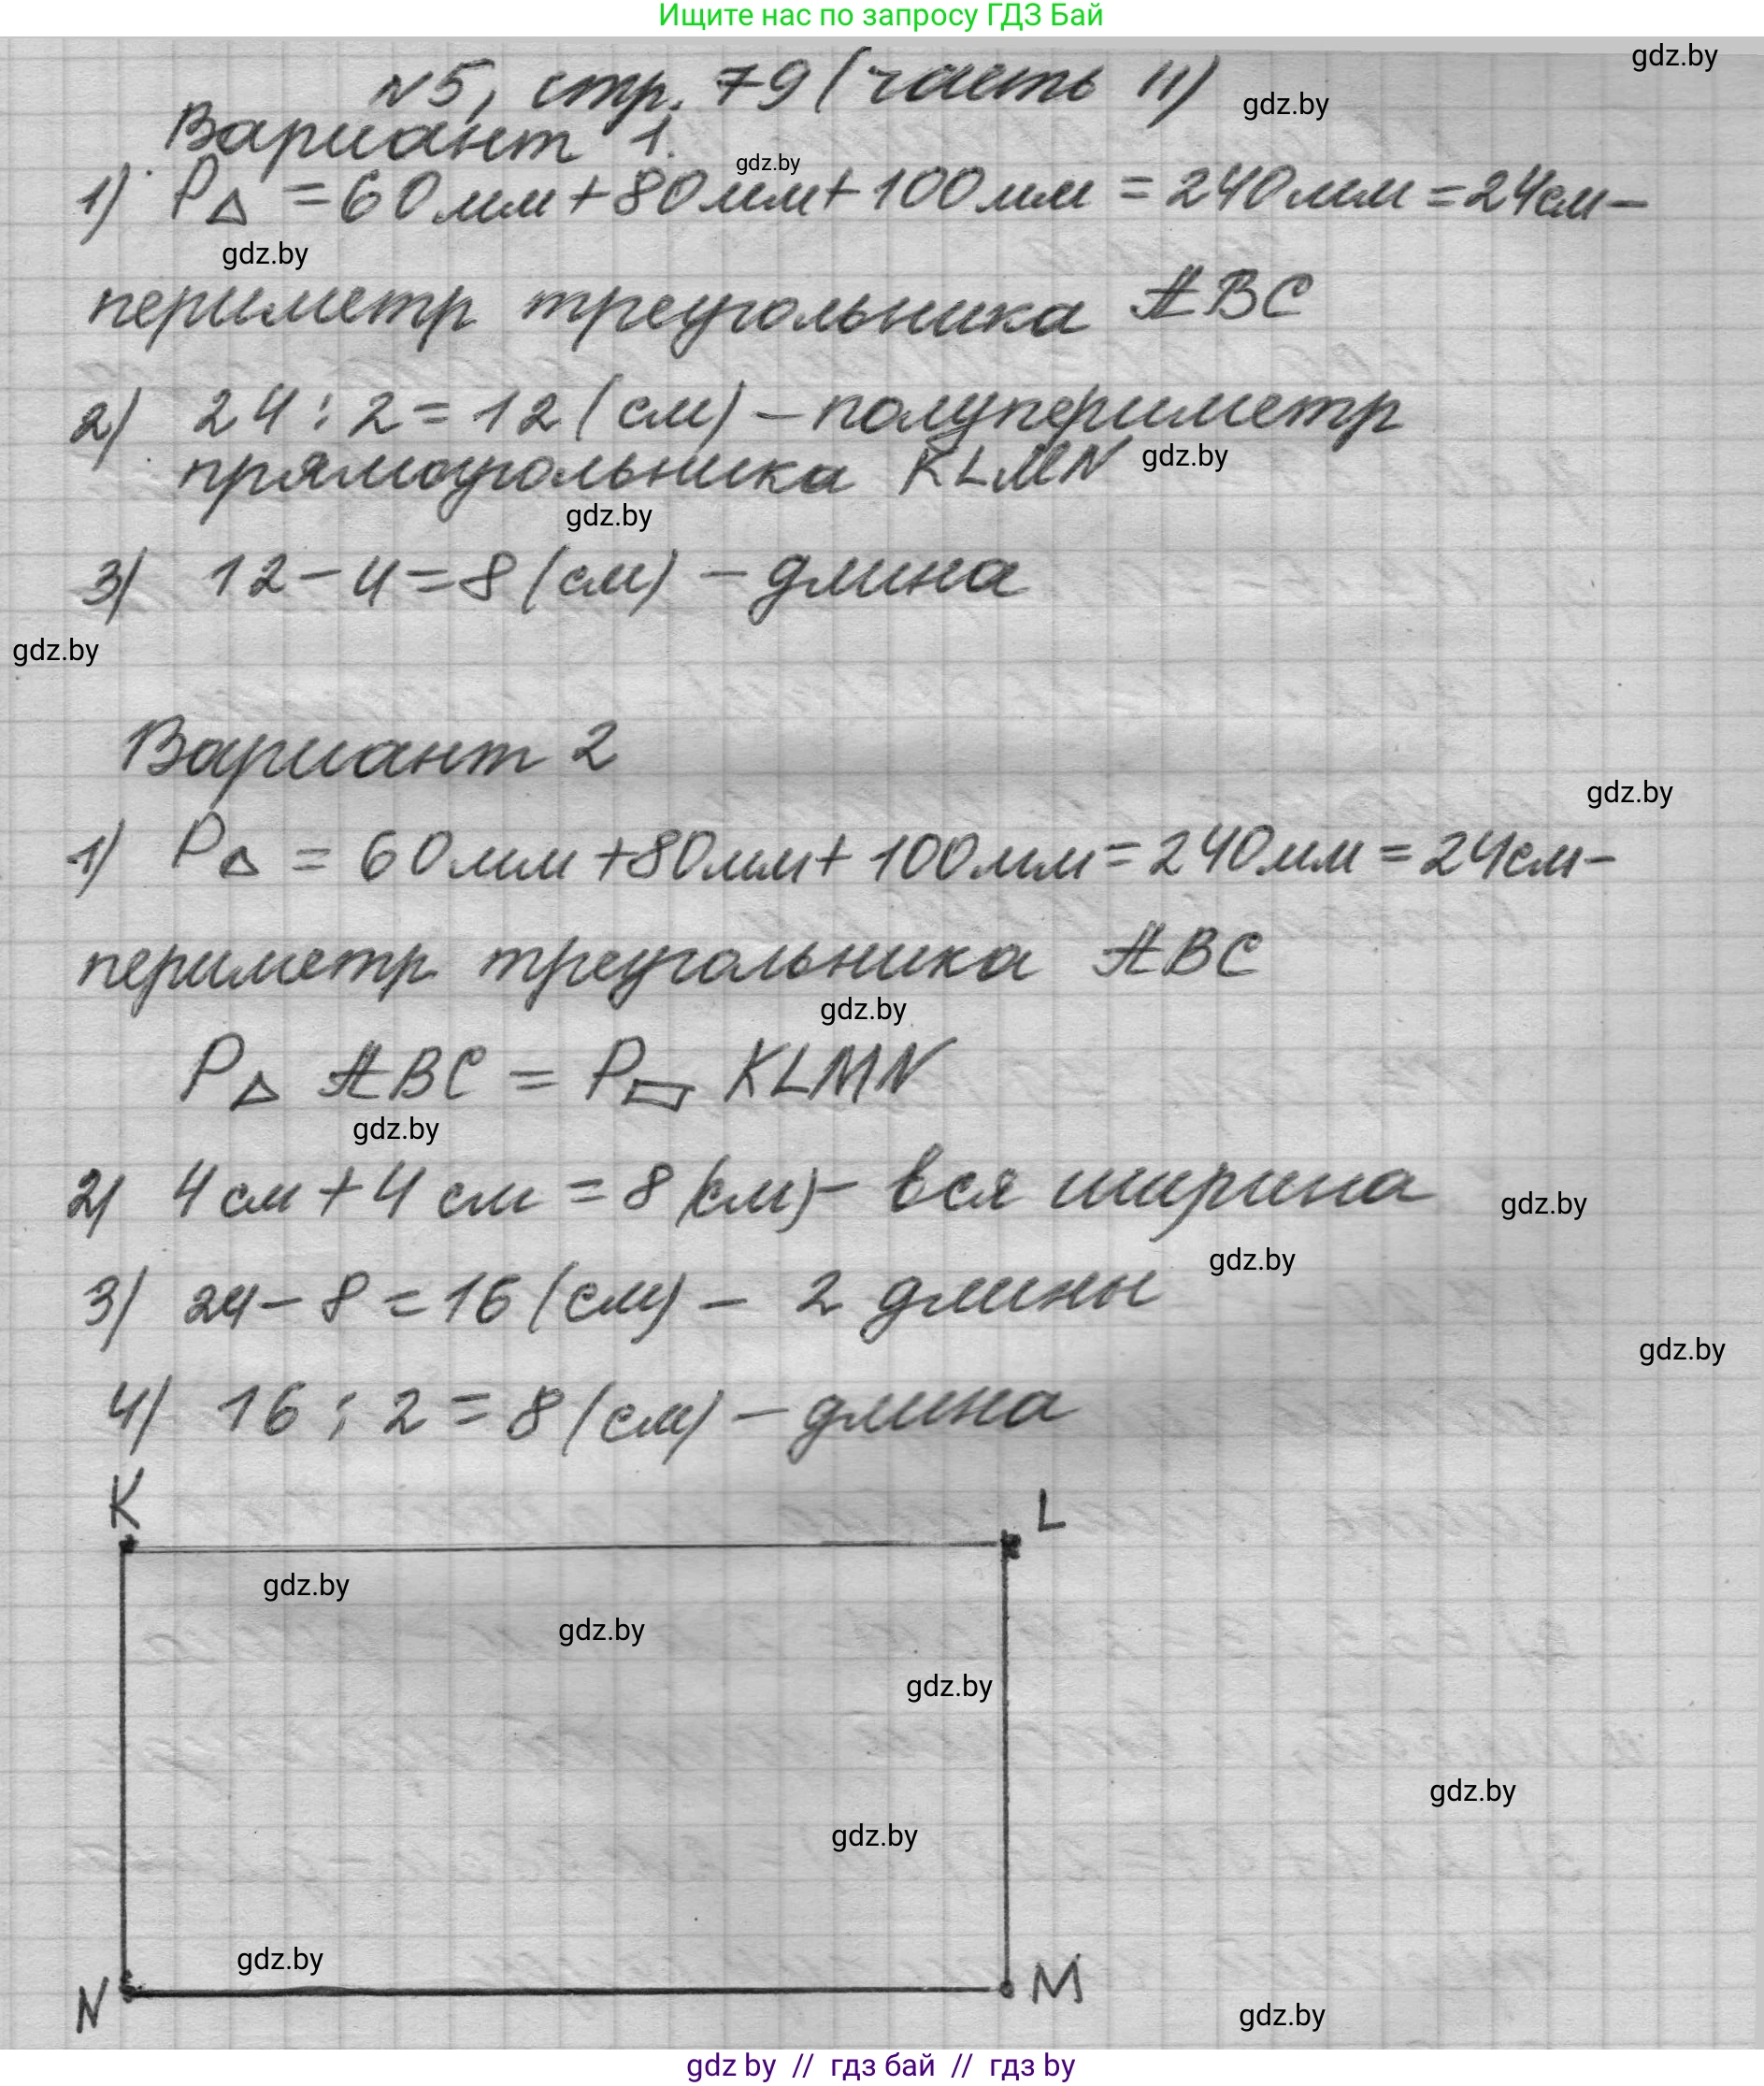 Ищите нас по запросу ГДЗ Бай
gdz.by
№5, стр. 79 (часть II)
gdz.by
Вариант 1.
gdz.by
1) P△ = 60 мм + 80 мм + 100 мм = 240 мм = 24 см –
gdz.by
периметр треугольника ABC
2) 24 : 2 = 12 (см) – полупериметр
прямоугольника KLMN
gdz.by
gdz.by
3) 12 – 4 = 8 (см) – длина
gdz.by
Вариант 2
gdz.by
1) P△ = 60 мм + 80 мм + 100 мм = 240 мм = 24 см –
периметр треугольника ABC
gdz.by
P△ ABC = P▭ KLMN
gdz.by
2) 4 см + 4 см = 8 (см) – вся ширина
gdz.by
gdz.by
3) 24 – 8 = 16 (см) – 2 длины
gdz.by
4) 16 : 2 = 8 (см) – длина
K
L
gdz.by
gdz.by
gdz.by
gdz.by
gdz.by
gdz.by
N
M
gdz.by
gdz by // гдз бай // гдз by